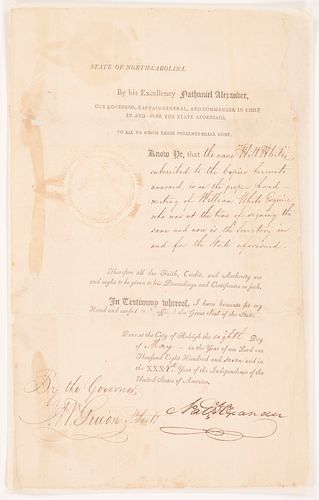 STATE OF NORTH-CAROLINA.
By his Excellency Nathaniel Alexander,
OUR GOVERNOR, CAPTAIN-GENERAL, AND COMMANDER IN CHIEF
IN AND OVER THE STATE AFORESAID,
TO ALL TO WHOM THESE PRESENTS SHALL COME,
Know Ye, that the name White
subscribed to the Copies hereunto
annexed, is in the proper hand-
writing of William White Esquire
who was at the time of signing the
same and now is the Secretary in
and for the State aforesaid.
Therefore all due Faith, Credit, and Authority are
and ought to be given to his Proceedings and Certificates as such.
In Testimony whereof, I have hereunto set my
Hand and caused to the Great Seal of the State.
Done at the City of Raleigh the eighth Day
of May in the Year of our Lord one
Thousand Eight Hundred and seven and in
the XXXIst Year of the Independence of the
United States of America.
By the Governor,
Nat. Alexander